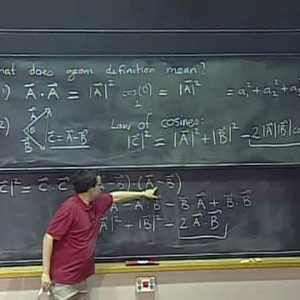 what does geom definition mean?
1) A⃗ · A⃗ = |A⃗|² cos(0) = |A⃗|² = a₁² + a₂² + a₃
1
2) A⃗ θ B⃗ C⃗ = A⃗ - B⃗
Law of cosines:
|C⃗|² = |A⃗|² + |B⃗|² - 2|A⃗||B⃗| cos
|C⃗|² = C⃗ · C⃗ - B⃗) · (A⃗ - B⃗)
- A⃗ · B⃗ - B⃗ · A⃗ + B⃗ · B⃗
A⃗|² + |B⃗|² - 2 A⃗ · B⃗